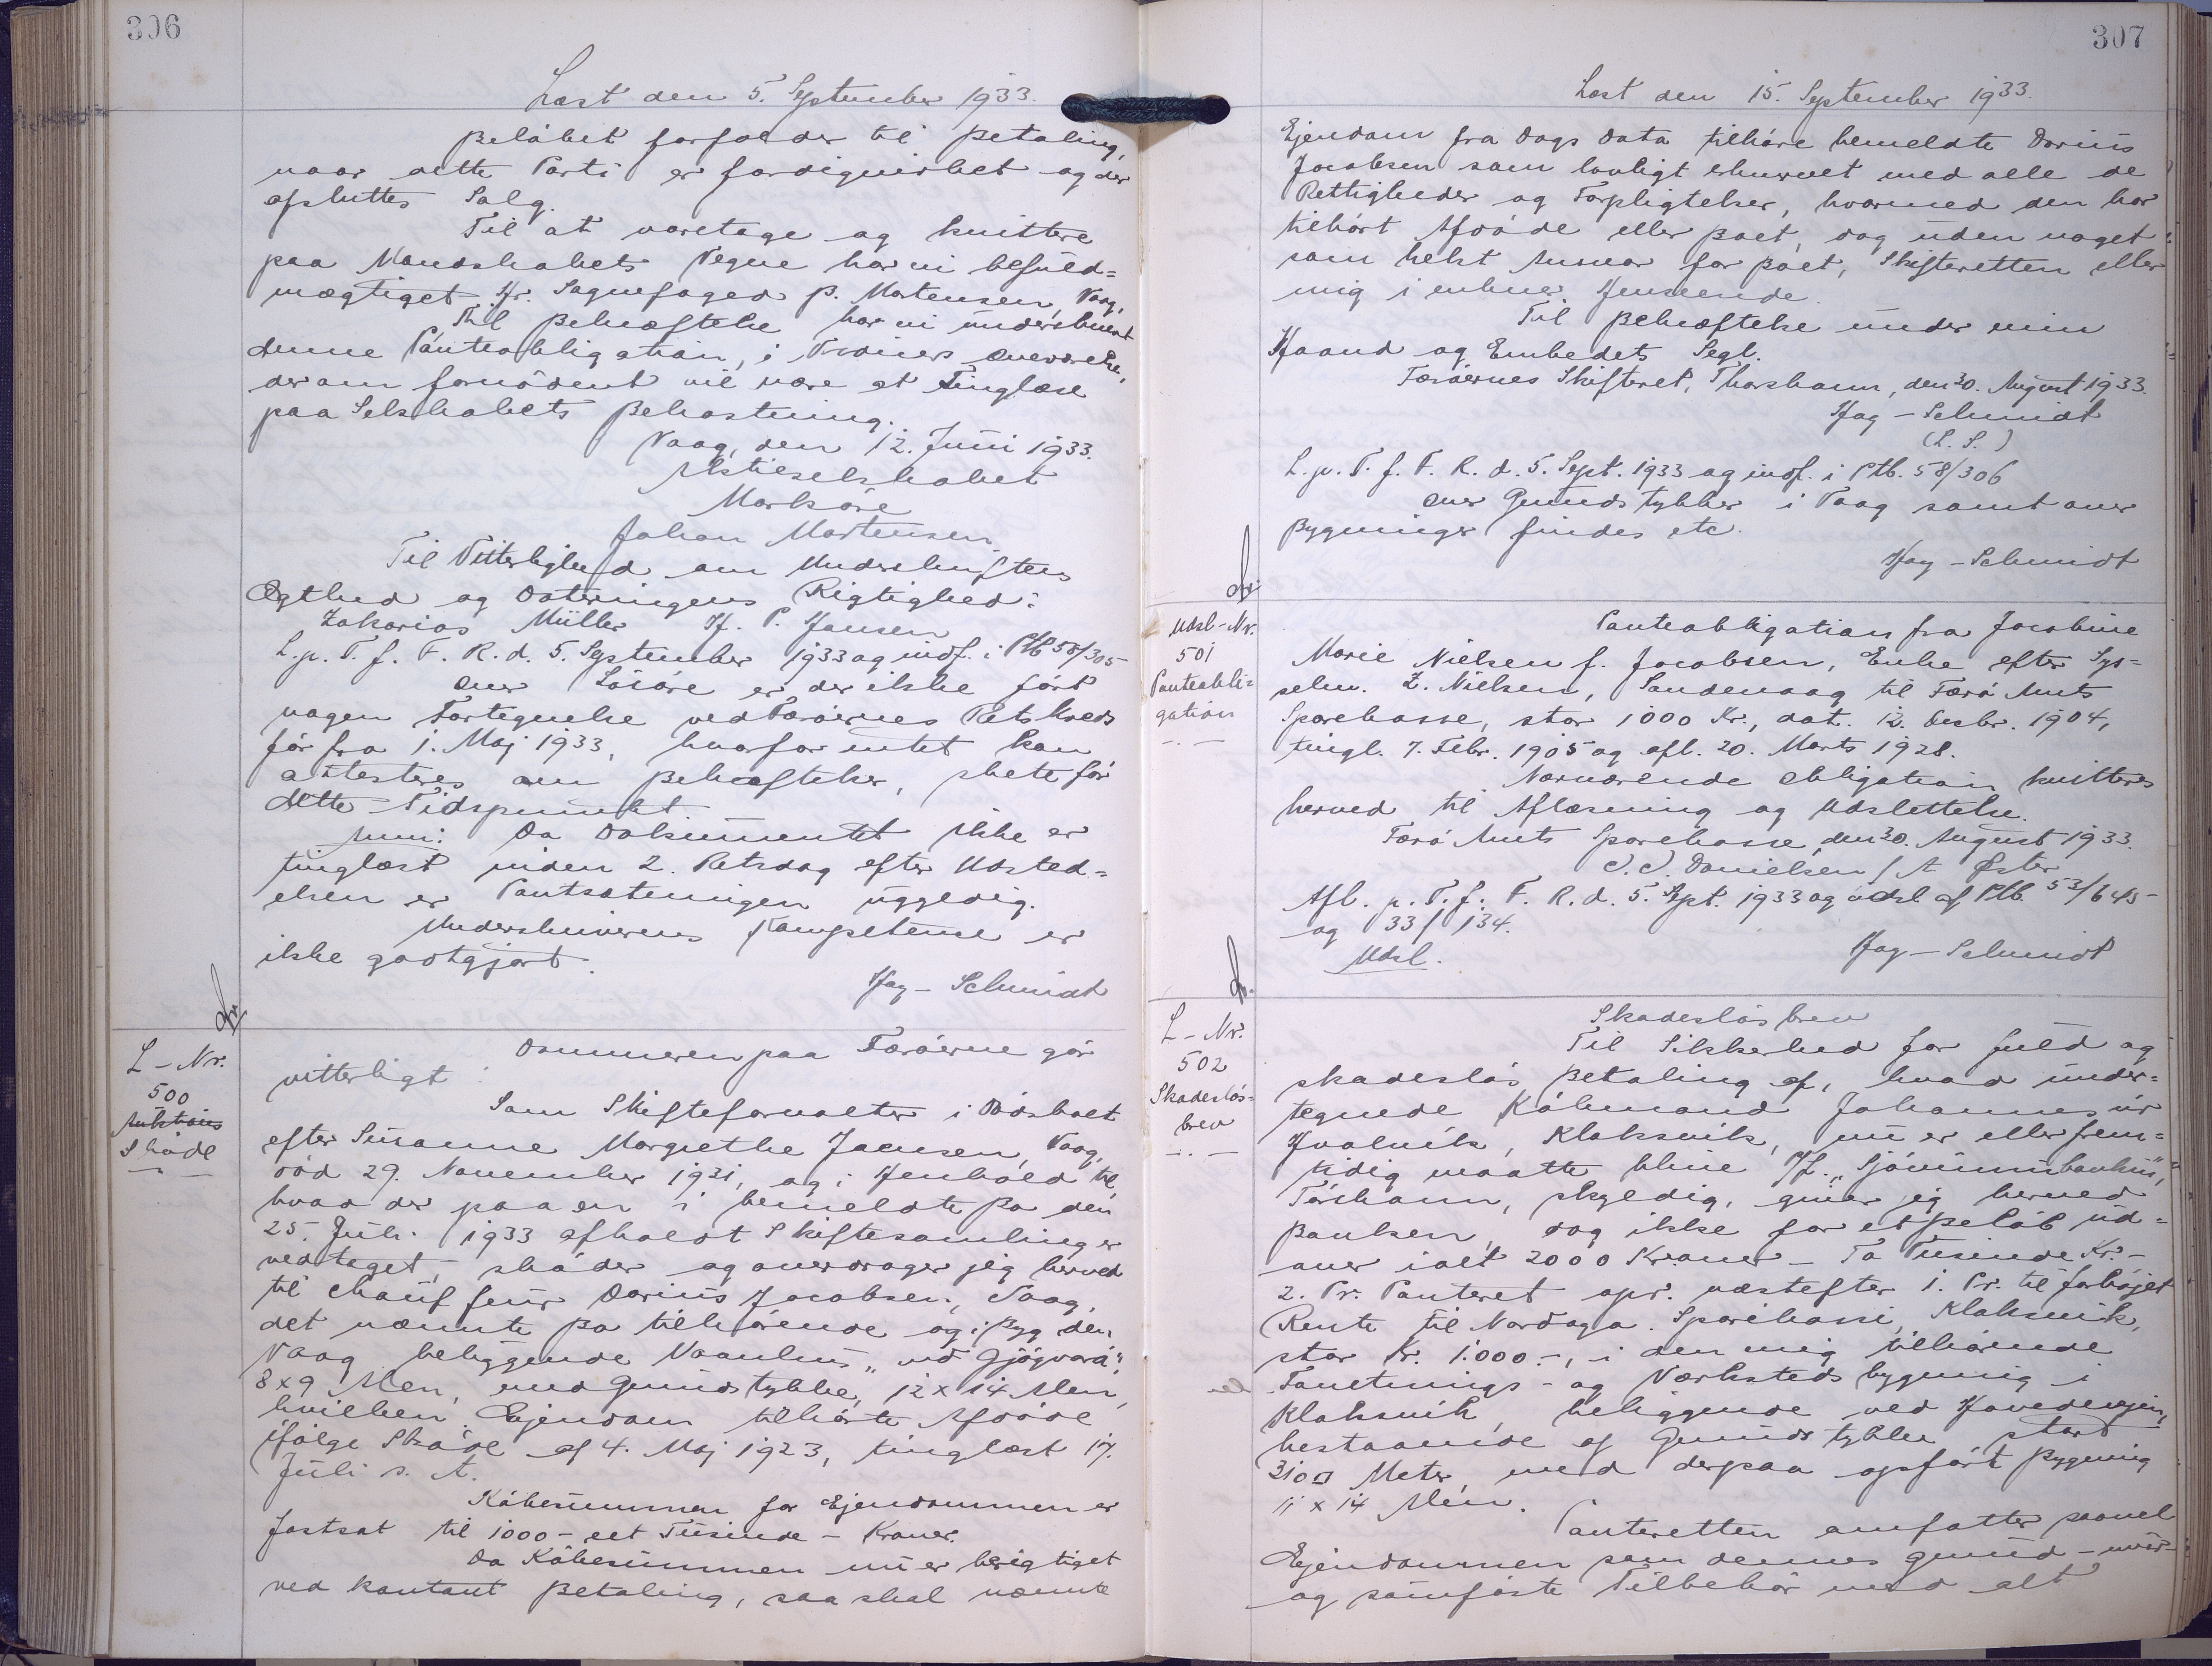 306
Læst den 5. September 1933.
Beløbet forfalder til Betaling,
naar dette Parti er færdigvirket og der
afsluttes Salg.
Til at varetage og kvittere
paa Mandskabets Vegne har vi befuld=
mægtiget Hr. Sagnefoged P. Mortensen, Vaag,
Til Bekræftelse har vi underskrevet
denne Panteobligation, i Vidners Overværelse,
der om fornødent vil være at Tinglæse
paa Selskabets Bekostning.
Vaag, den 12. Juni 1933.
Aktieselskabet
Marköre
Johan Mortensen
Til Vitterlighed om Underskriftens
Ægthed og Dateringens Rigtighed:
Zakarias Müller H. P. Hansen
L. p. T. f. F. R. d. 5. September 1933 og indf. i Ptb 58/305
Over Løsøre er der ikke ført
nogen Fortegnelse ved Færøernes Retskreds
før fra 1. Maj 1933, hvorfor intet kan
attesteres om Behæftelser, skete før
dette Tidspunkt.
Anm: Da Dokumentet ikke er
tinglæst inden 2. Retsdag efter Udsted=
elsen er Pantsætningen ugyldig.
Underskriverens Kompetence er
ikke godtgjort.
Hay-Schmidt
L-Nr.
500
Auktions
Skøde
Dommeren paa Færøerne gør
vitterligt:
Som Skifteforvalter i Dødsboet
efter Susanne Margrethe Joensen, Vaag,
død 29. November 1931, og i Henhold til,
hvad der paa en i bemeldte Bo den
25. Juli 1933 afholdt Skiftesamling er
vedtaget, skøder og overdrager jeg herved
til Chauffeur Dorius Jacobsen, Vaag,
det nævnte Bo tilhørende og i Bygden
Vaag beliggende Vaanhus "við Gjógvará",
8 x 9 Alen, med Grundstykke, 12 x 14 Alen,
hvilken Ejendom tilhørte Afdøde
ifølge Skøde af 4. Maj 1923, tinglæst 17.
Juli s. A.
Købesummen for Ejendommen er
fastsat til 1000 - eet Tusinde - Kroner.
Da Købesummen nu er berigtiget
ved kontant Betaling, saa skal nævnte
307
Læst den 15. September 1933.
Ejendom fra Dags Dato tilhøre bemeldte Dorius
Jacobsen som lovligt erhvervet med alle de
Rettigheder og Forpligtelser, hvormed den har
tilhørt Afdøde eller Boet, dog uden noget
som helst Ansvar for Boet, Skifteretten eller
mig i enhver Henseende.
Til Bekræftelse under min
Haand og Embedets Segl.
Færøernes Skifteret, Thorshavn, den 30. August 1933.
Hay-Schmidt
(L. S.)
L. p. T. f. F. R. d. 5. Sept. 1933 og indf. i Ptb. 58/306
Over Grundstykker i Vaag samt over
Bygninger findes etc.
Hay-Schmidt
Udsl-Nr.
501
Panteobli=
gation
Panteobligation fra Jacobine
Marie Nielsen f. Jacobsen, Enke efter Sys=
selm. Z. Nielsen, Sandevaag til Færø Amts
Sparekasse, stor 1000 Kr., dat. 12. Decbr. 1904,
tingl. 7. Febr. 1905 og afl. 20. Marts 1928.
Nærværende Obligation kvitteres
herved til Aflæsning og Udslettelse.
Færø Amts Sparekasse, den 30. August 1933.
J. J. Danielsen / A Øster
Afl. p. T. f. F. R. d. 5. Sept. 1933 og udsl af Ptb. 53/645
og 33/134.
Udsl.
Hay-Schmidt
L-Nr.
502
Skadesløs=
brev
Skadesløsbrev
Til Sikkerhed for fuld og
skadesløs Betaling af, hvad under=
tegnede Købmand Johannes úr
Hvalvík, Klaksvik, nu er eller frem=
tidig maatte blive H/f. "Sjóvinnubankin",
Tórshavn, skyldig, giver jeg herved
Banken, dog ikke for et Beløb ud=
over ialt 2000 Kroner - To Tusinde Kr. -
2. Pr. Panteret opr. næstefter 1. Pr. til forhøjet
Rente til Nordoya Sparikassi, Klaksvik,
stor Kr. 1.000.-, i den mig tilhørende
Forretnings- og Værkstedsbygning i
Klaksvik, beliggende ved Hovedvejen,
bestaaende af Grundstykke stort
310 □ Meter med derpaa opført Bygning
11 x 14 Alen.
Panteretten omfatter saavel
Ejendommen som dennes grund-mur-
og sømfaste Tilbehør med alt